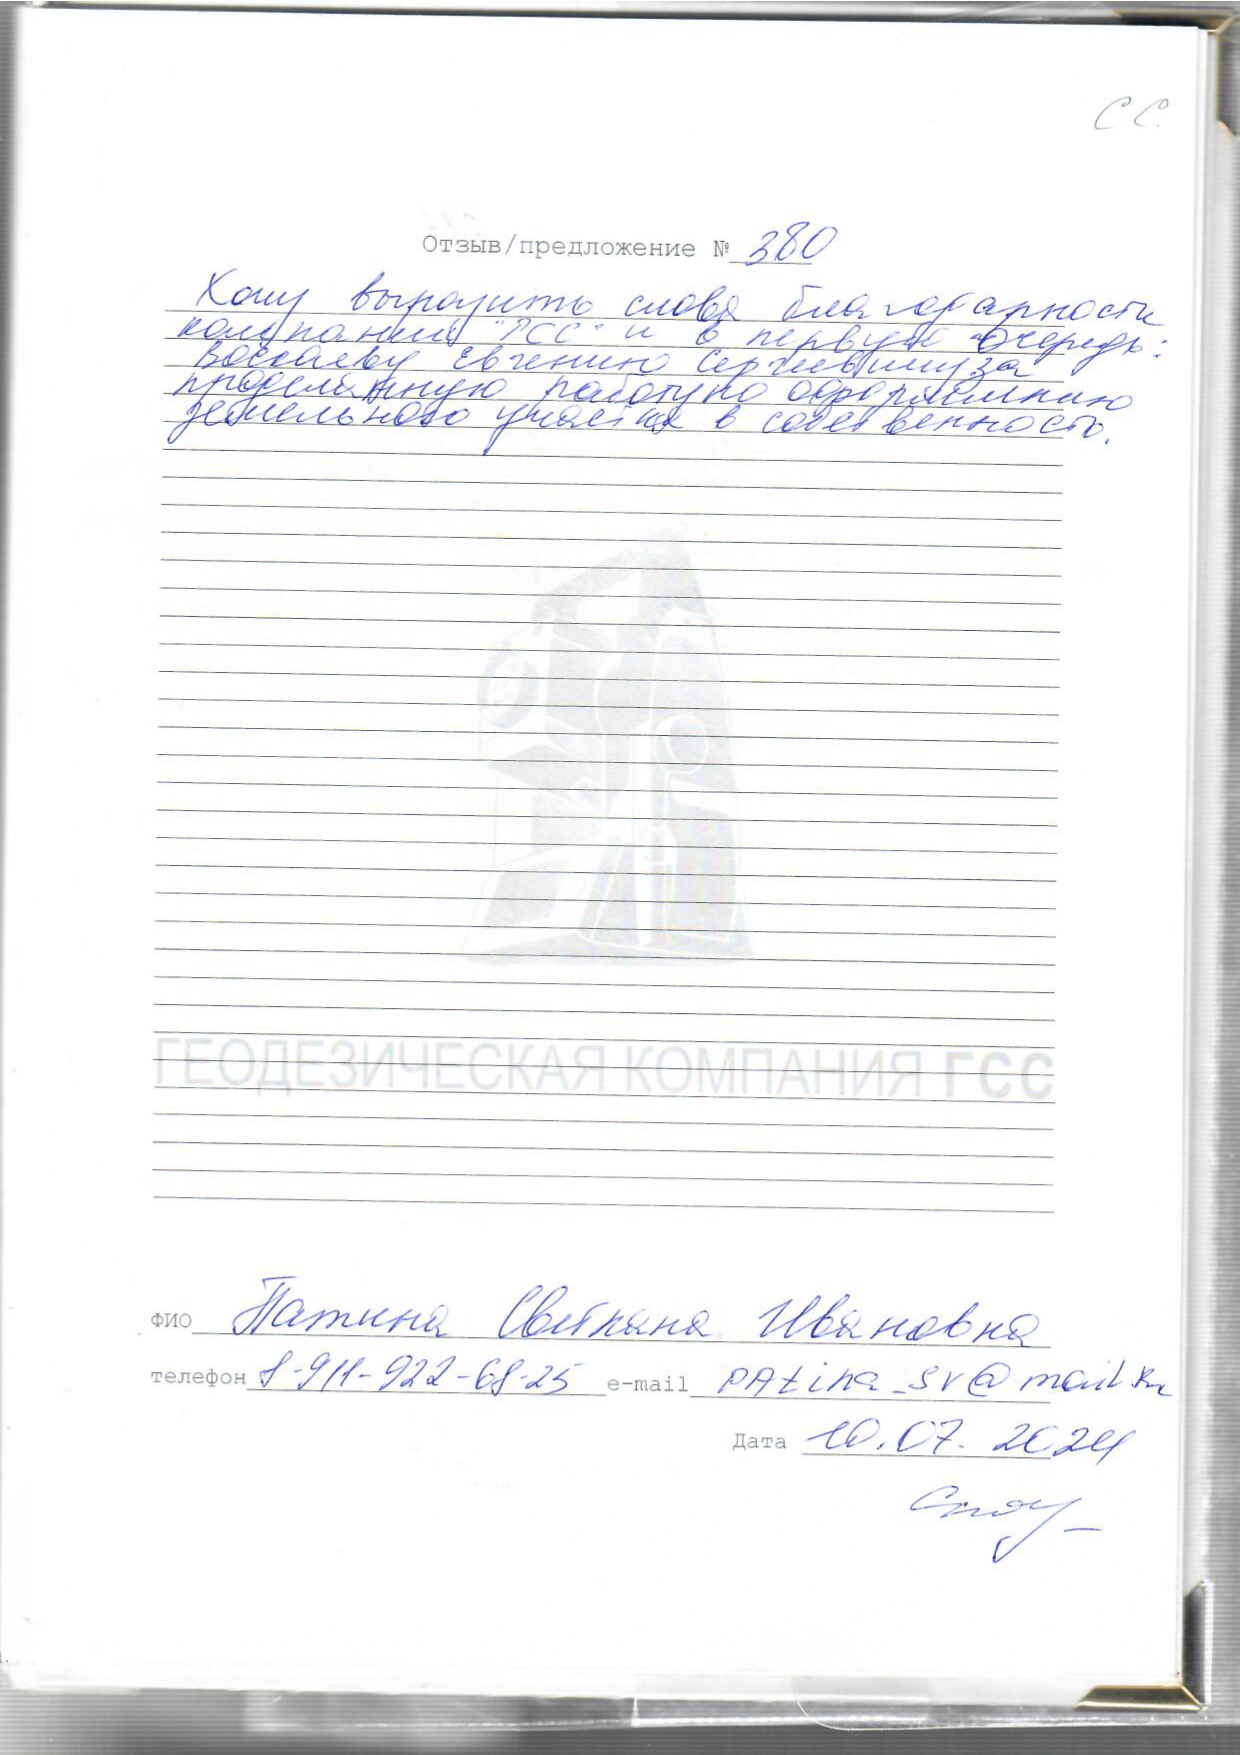 С С.
Отзыв/предложение № 380
Хочу выразить слова благодарности
компании "ГСС" и в первую очередь:
Евгению Сергеевичу за
проделанную работу по оформлению
земельного участка в собственность.
ГЕОДЕЗИЧЕСКАЯ КОМПАНИЯ ГСС
ФИО Патина Светлана Ивановна
телефон 8-911-922-68-25 e-mail patina_sv@mail.ru
Дата 10.07.2024